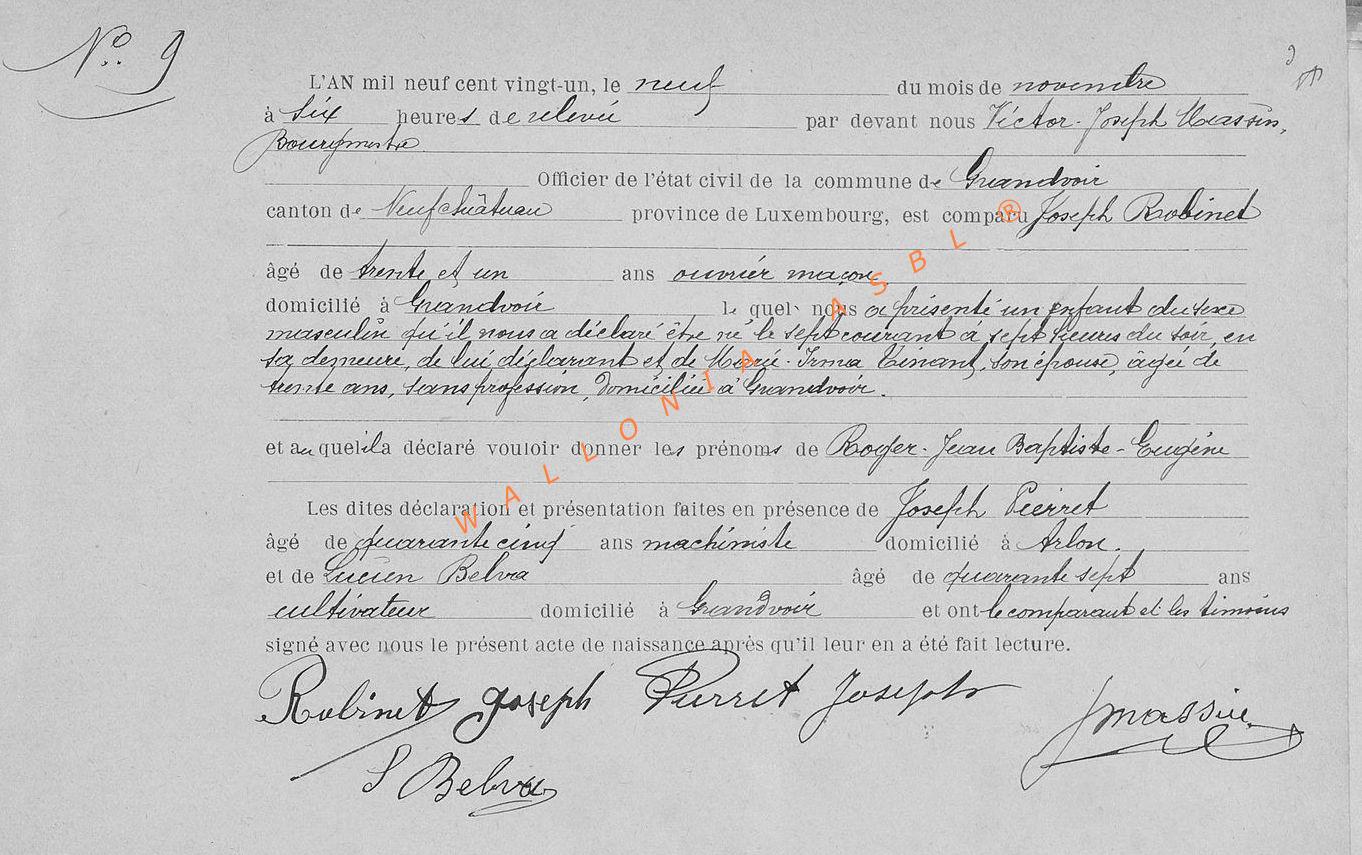 No 9
L'AN mil neuf cent vingt-un, le neuf du mois de novembre
à six heures de relevée par devant nous Victor-Joseph Massin,
Bourgmestre
Officier de l'état civil de la commune de Grandvoir
canton de Neufchâteau province de Luxembourg, est comparu Joseph Robinet
âgé de trente et un ans ouvrier maçon
domicilié à Grandvoir lequel nous a présenté un enfant du sexe
masculin qu'il nous a déclaré être né le sept courant à sept heures du soir, en
sa demeure, de lui déclarant et de Marie-Irma Tinant, son épouse, âgée de
trente ans, sans profession, domiciliée à Grandvoir.
et auquel il a déclaré vouloir donner les prénoms de Roger-Jean Baptiste-Eugène
Les dites déclaration et présentation faites en présence de Joseph Pierret
âgé de quarante cinq ans machiniste domicilié à Arlon.
et de Lucien Belva âgé de quarante sept ans
cultivateur domicilié à Grandvoir et ont le comparant et les témoins
signé avec nous le présent acte de naissance après qu'il leur en a été fait lecture.
Robinet Joseph Pierret Joseph JMassin
L Belva
WALLONIA ASBL ®